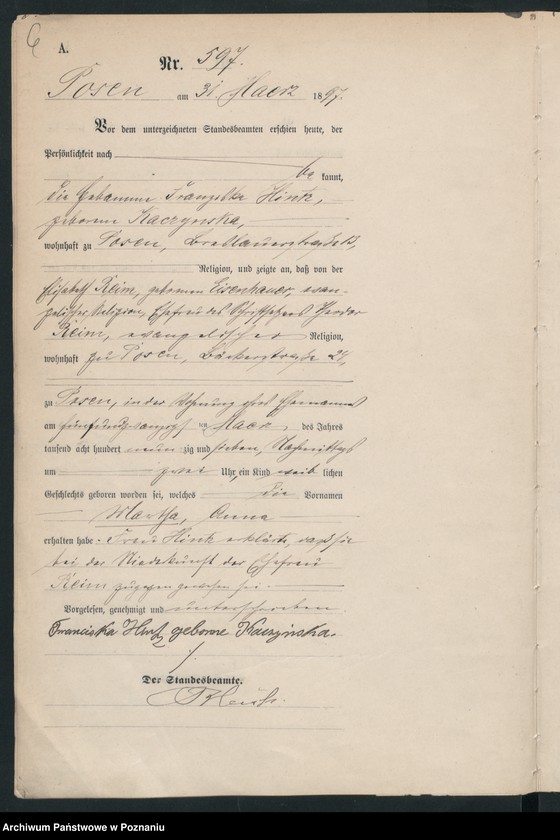 A.
Nr. 597.
Posen am 31. Maerz 1897.
Vor dem unterzeichneten Standesbeamten erschien heute, der
Persönlichkeit nach
be kannt,
die Hebamme Franziska Hintz,
geborene Kaczynska,
wohnhaft zu Posen, Breslauerstraße
Religion, und zeigte an, daß von der
Elisabeth Reim, geborenen Eisenhauer, evan-
gelischer Religion, Ehefrau des Schriftsetzers Theodor
Reim, evangelischer Religion,
wohnhaft zu Posen, Bäckerstraße 21,
zu Posen, in der Wohnung ihres Ehemannes
am fünfundzwanzigsten Maerz des Jahres
tausend acht hundert neun zig und sieben, Nachmittags
um zwei Uhr, ein Kind weib lichen
Geschlechts geboren worden sei, welches die Vornamen
Martha, Anna
erhalten habe. Frau Hintz erklärte, daß sie
bei der Niederkunft der Ehefrau
Reim zugegen gewesen sei.
Vorgelesen, genehmigt und unterschrieben.
Franciska Hintz geborene Kaczynska.
Der Standesbeamte.
Archiwum Państwowe w Poznaniu